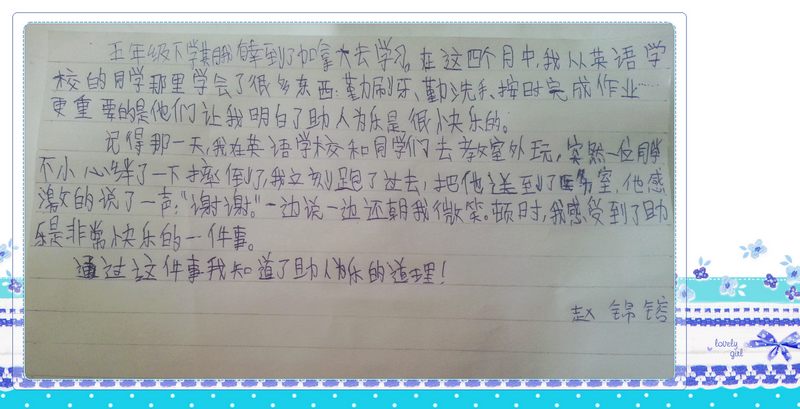 五年级下学期我有幸到了加拿大去学习,在这四个月中,我从英语学
校的同学那里学会了很多东西:勤刷牙、勤洗手、按时完成作业……
更重要的是他们让我明白了助人为乐是很快乐的。
记得那一天,我在英语学校和同学们去教室外玩,突然一位同学
不小心绊了一下摔倒了,我立刻跑了过去,把他送到了医务室,他感
激的说了一声:“谢谢。”一边说一边还朝我微笑。顿时,我感受到了助
乐是非常快乐的一件事。
通过这件事我知道了助人为乐的道理!
赵锦镕
lovely
girl